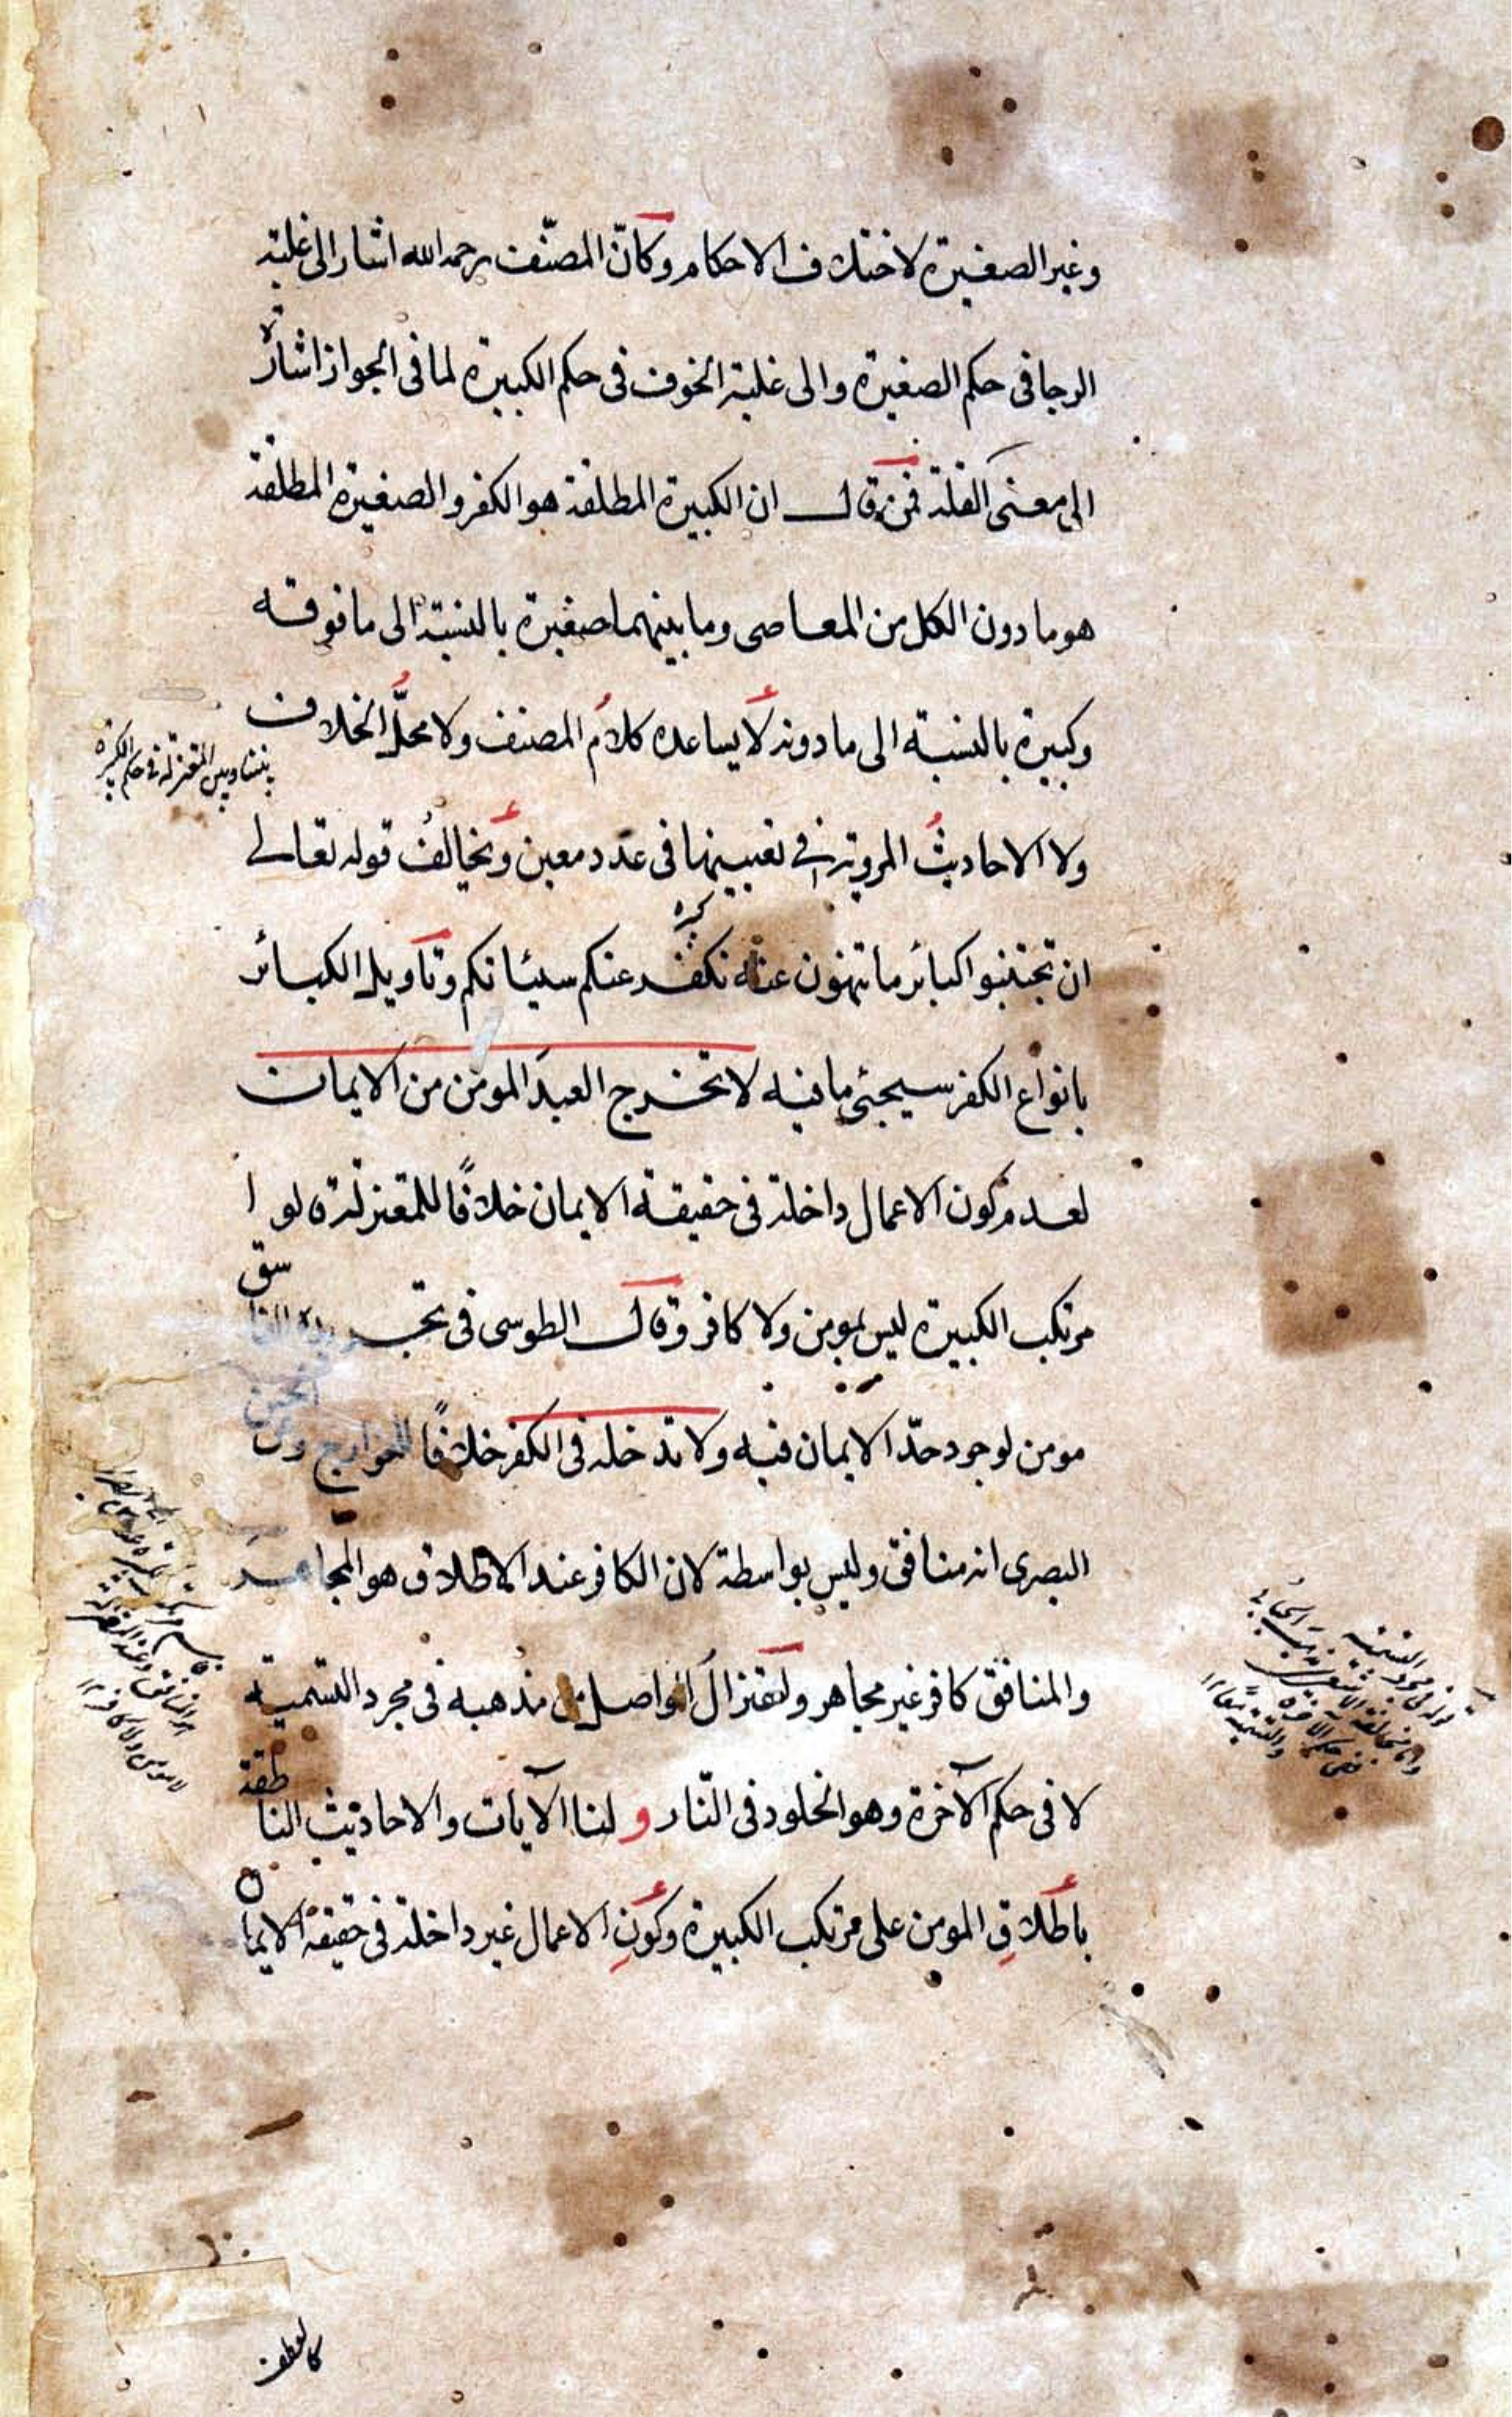 وغير الصغيرة لاختلاف الاحكام وكانّ المصنّف رحمه الله اشار الى غلبة
الرجا فى حكم الصغيرة والى غلبة الخوف فى حكم الكبيرة لما فى الجواز اشارة
الى معنى القلة فمن قال ان الكبيرة المطلقة هو الكفر والصغيرة المطلقة
هو ما دون الكل من المعاصى وما بينهما صغيرة بالنسبة الى ما فوقه
وكبيرة بالنسبة الى ما دونه لا يساعده كلامُ المصنف ولا محلُّ الخلاف
بيننا وبين المعتزلة فى حكم الكبيرة
ولا الاحاديثُ المروية فى تعيينها فى عدد معين ويخالفُ قوله تعالى
ان تجتنبوا كبائر ما تنهون عنه نكفر عنكم سيئاتكم وتاويل الكبائر
بانواع الكفر سيجئ ما فيه لا تخرج العبدَ المومن من الايمان
لعدم كون الاعمال داخلة فى حقيقة الايمان خلافًا للمعتزلة قالوا
مرتكب الكبيرة ليس بمومن ولا كافر وقال الطوسى فى تجريده الفاسق
مومن لوجود حدّ الايمان فيه ولا تدخله فى الكفر خلافًا للخوارج وعن الحسن
البصرى انه منافق وليس بواسطة لان الكافر عند الاطلاق هو المجاهر
والمنافق كافر غير مجاهر واعتزال الواصل من مذهبه فى مجرد التسمية
لا فى حكم الآخرة وهو الخلود فى النّار و لنا الآيات والاحاديث الناطقة
باطلاقِ المومن على مرتكب الكبيرة وكونِ الاعمال غير داخلة فى حقيقة الايمان
كالعطف